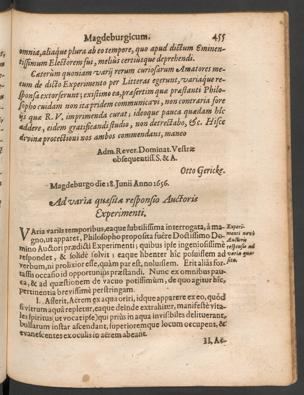 Magdeburgicum. 455
omnia, aliaque plura ab eo tempore, quo apud dictum Eminen-
tissimum Electorem fui, melius certiusque deprehendi.
Cæterùm quoniam varij rerum curiosarum Amatores me-
cum de dicto Experimento per Litteras egerunt, variaque re-
sponsa extorserunt; existimo ea, præsertim quæ præstanti Philo-
sopho cuidam non ita pridem communicavi, non contraria fore
ijs quæ R. V. imprimenda curat, ideoque pauca quædam hîc
addere, eidem gratificandi studio, non detrectabo, &c. Hisce
divinæ protectioni nos ambos commendans, maneo
Adm. Rever. Dominat. Vestræ
obsequentiss. S. & A.
Otto Gericke.
Magdeburgo die 18. Junii Anno 1656.
Ad varia quæsita responsio Auctoris
Experimenti.
VAria variis temporibus, eaque subtilissima interrogata, à ma-
gno, ut apparet, Philosopho proposita fuêre Doctissimo Do-
mino Auctori prædicti Experimenti; quibus ipse ingeniosissimè
respondet, & solidè solvit: eaque libenter hîc posuissem ad
verbum, ni prolixior esse, quàm par est, noluissem. Erit aliàs for-
tassis occasio id opportuniùs præstandi. Nunc ex omnibus pau-
ca, & ad quæstionem de vacuo potissimùm, de quo agitur hîc,
pertinentia brevissimè perstringam.
I. Asserit, Aërem ex aqua oriri, idque apparere ex eo, quòd
si vitrum aquâ repletur, eaque deinde extrahitur, manifestè vita-
les spiritus (ut vocat ipse) qui priùs in aqua invisibiles delituerant,
bullarum instar ascendant, superioremque locum occupent, &
evanescentes ex oculis in aërem abeant.
II. Ae-
Experi-
menti novi
Auctoris
responsio ad
varia quæ-
sita.